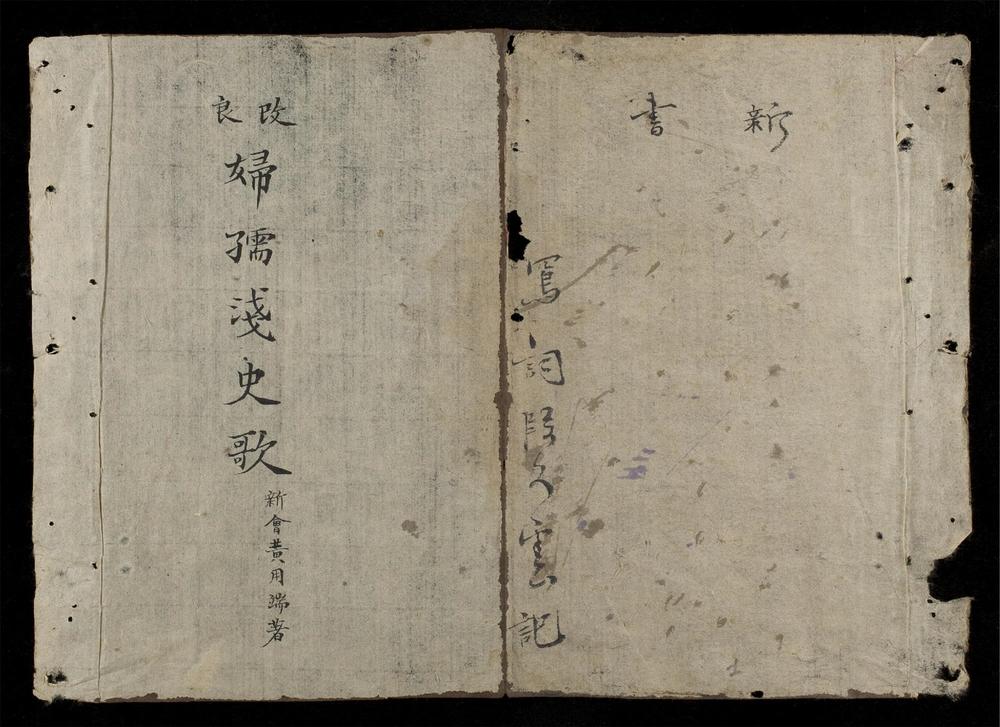 新書
寫詞雲記
改良
婦孺淺史歌
新會黃用端著